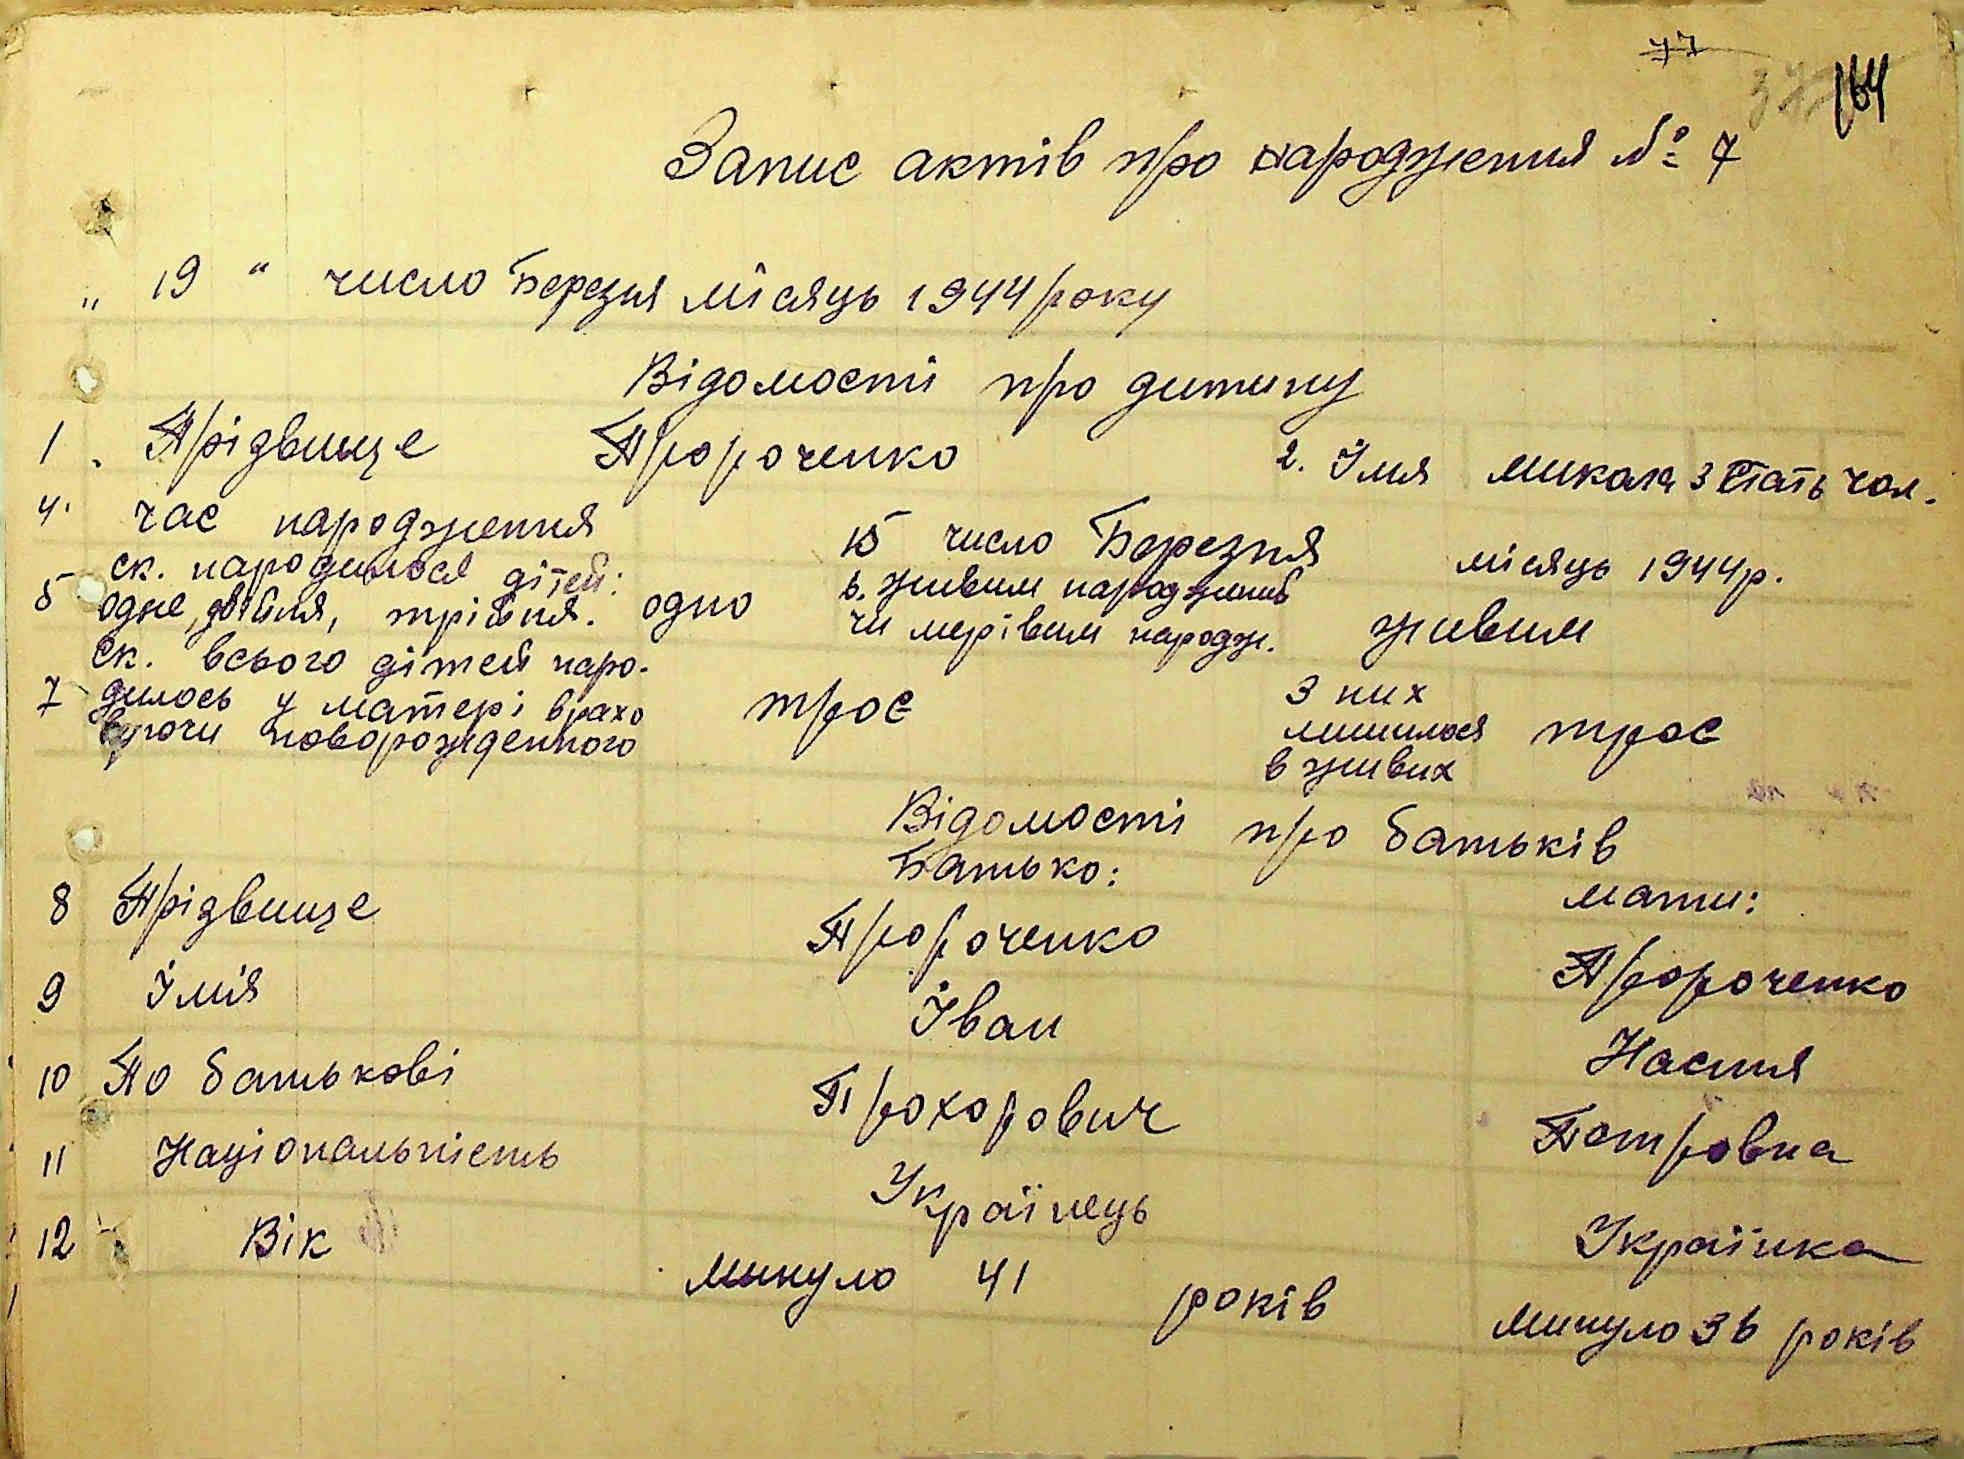 77
37 164
Запис актів про народження № 7
„ 19 “ число Березня місяць 1944 року
Відомості про дитину
1. Прізвище Пророченко 2. Імя микола 3 Стать чол.
4. час народження 15 число Березня місяць 1944р.
5 ск. народилося дітей: одне, двійня, трійня. одно
6. живим народжений чи мертвим народж. живим
7 ск. всього дітей народилось у матері врахо
вуючи новорожденного троє
З них лишилося в живих троє
Відомості про батьків
Батько: мати:
8 Прізвище Пророченко Пророченко
9 Імія Іван Настя
10 По батькові Прохорович Петровна
11 Національність Українець Українка
12 Вік минуло 41 років минуло 36 років